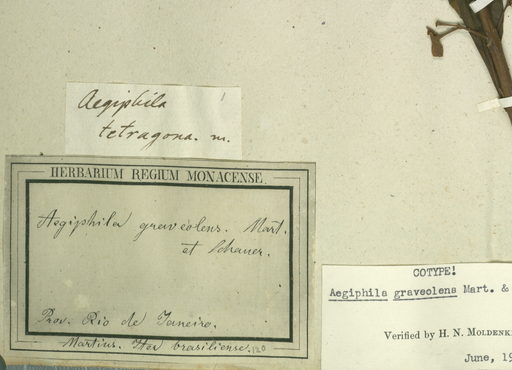 Aegiphila
tetragona. m.
HERBARIUM REGIUM MONACENSE.
Aegiphila graveolens. Mart.
et Schauer.
Prov. Rio de Janeiro.
Martius. Iter brasiliense.
COTYPE!
Aegiphila graveolens Mart. &
Verified by H. N. MOLDENK
June, 19